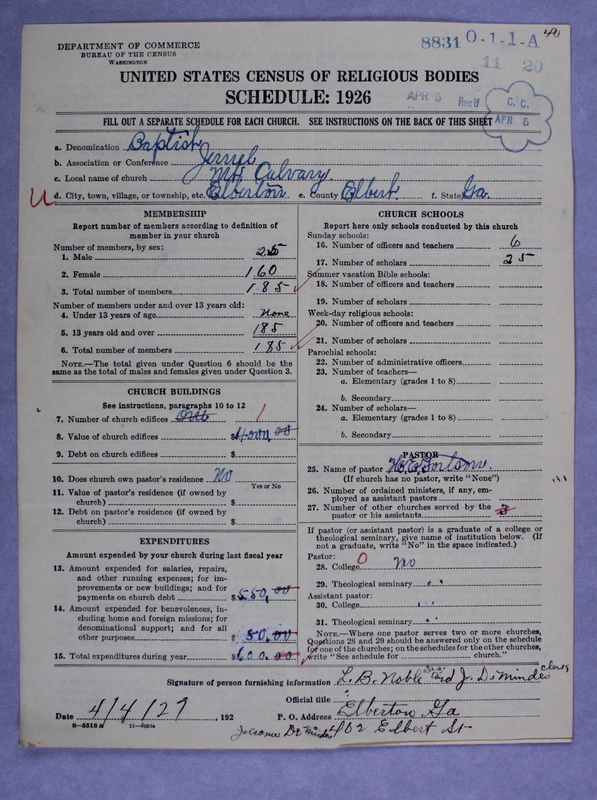 DEPARTMENT OF COMMERCE
BUREAU OF THE CENSUS
WASHINGTON
8831 0-1-1-A
11 20
UNITED STATES CENSUS OF RELIGIOUS BODIES
SCHEDULE: 1926
APR 5 Rec'd
C. C.
APR 5
FILL OUT A SEPARATE SCHEDULE FOR EACH CHURCH. SEE INSTRUCTIONS ON THE BACK OF THIS SHEET
a. Denomination Baptist
b. Association or Conference Jerruel
c. Local name of church Mt Calvary
d. City, town, village, or township, etc. Elberton e. County Elbert f. State Ga.
MEMBERSHIP
Report number of members according to definition of
member in your church
Number of members, by sex:
1. Male 25
2. Female 160
3. Total number of members 185
Number of members under and over 13 years old:
4. Under 13 years of age None
5. 13 years old and over 185
6. Total number of members 185
NOTE.—The total given under Question 6 should be the
same as the total of males and females given under Question 3.
CHURCH BUILDINGS
See instructions, paragraphs 10 to 12
7. Number of church edifices one 1
8. Value of church edifices $4000.00
9. Debt on church edifices $
10. Does church own pastor's residence No
Yes or No
11. Value of pastor's residence (if owned by
church) $
12. Debt on pastor's residence (if owned by
church) $
EXPENDITURES
Amount expended by your church during last fiscal year
13. Amount expended for salaries, repairs,
and other running expenses; for im-
provements or new buildings; and for
payments on church debt $550.00
14. Amount expended for benevolences, in-
cluding home and foreign missions; for
denominational support; and for all
other purposes $50.00
15. Total expenditures during year $600.00
CHURCH SCHOOLS
Report here only schools conducted by this church
Sunday schools:
16. Number of officers and teachers 6
17. Number of scholars 25
Summer vacation Bible schools:
18. Number of officers and teachers
19. Number of scholars
Week-day religious schools:
20. Number of officers and teachers
21. Number of scholars
Parochial schools:
22. Number of administrative officers
23. Number of teachers—
a. Elementary (grades 1 to 8)
b. Secondary
24. Number of scholars—
a. Elementary (grades 1 to 8)
b. Secondary
PASTOR
25. Name of pastor
(If church has no pastor, write "None")
26. Number of ordained ministers, if any, em-
ployed as assistant pastors
27. Number of other churches served by the
pastor or his assistants 3
If pastor (or assistant pastor) is a graduate of a college or
theological seminary, give name of institution below. (If
not a graduate, write "No" in the space indicated.)
Pastor:
28. College 0 No
29. Theological seminary " "
Assistant pastor:
30. College " "
31. Theological seminary " "
NOTE.—Where one pastor serves two or more churches,
Questions 28 and 29 should be answered only on the schedule
for one of the churches; on the schedules for the other churches,
write "See schedule for church."
Signature of person furnishing information L. B. Noble and J. DiMindes clerk
Official title
Date 4/4/27, 192 P. O. Address Elberton Ga
402 Elbert St